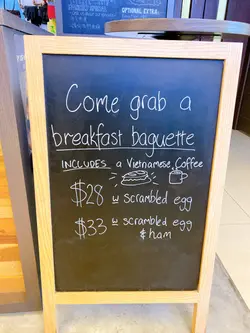 OPTIONAL EXTRA
Come grab a
breakfast baguette
INCLUDES a Vietnamese Coffee
$28 w scrambled egg
$33 w scrambled egg
& ham